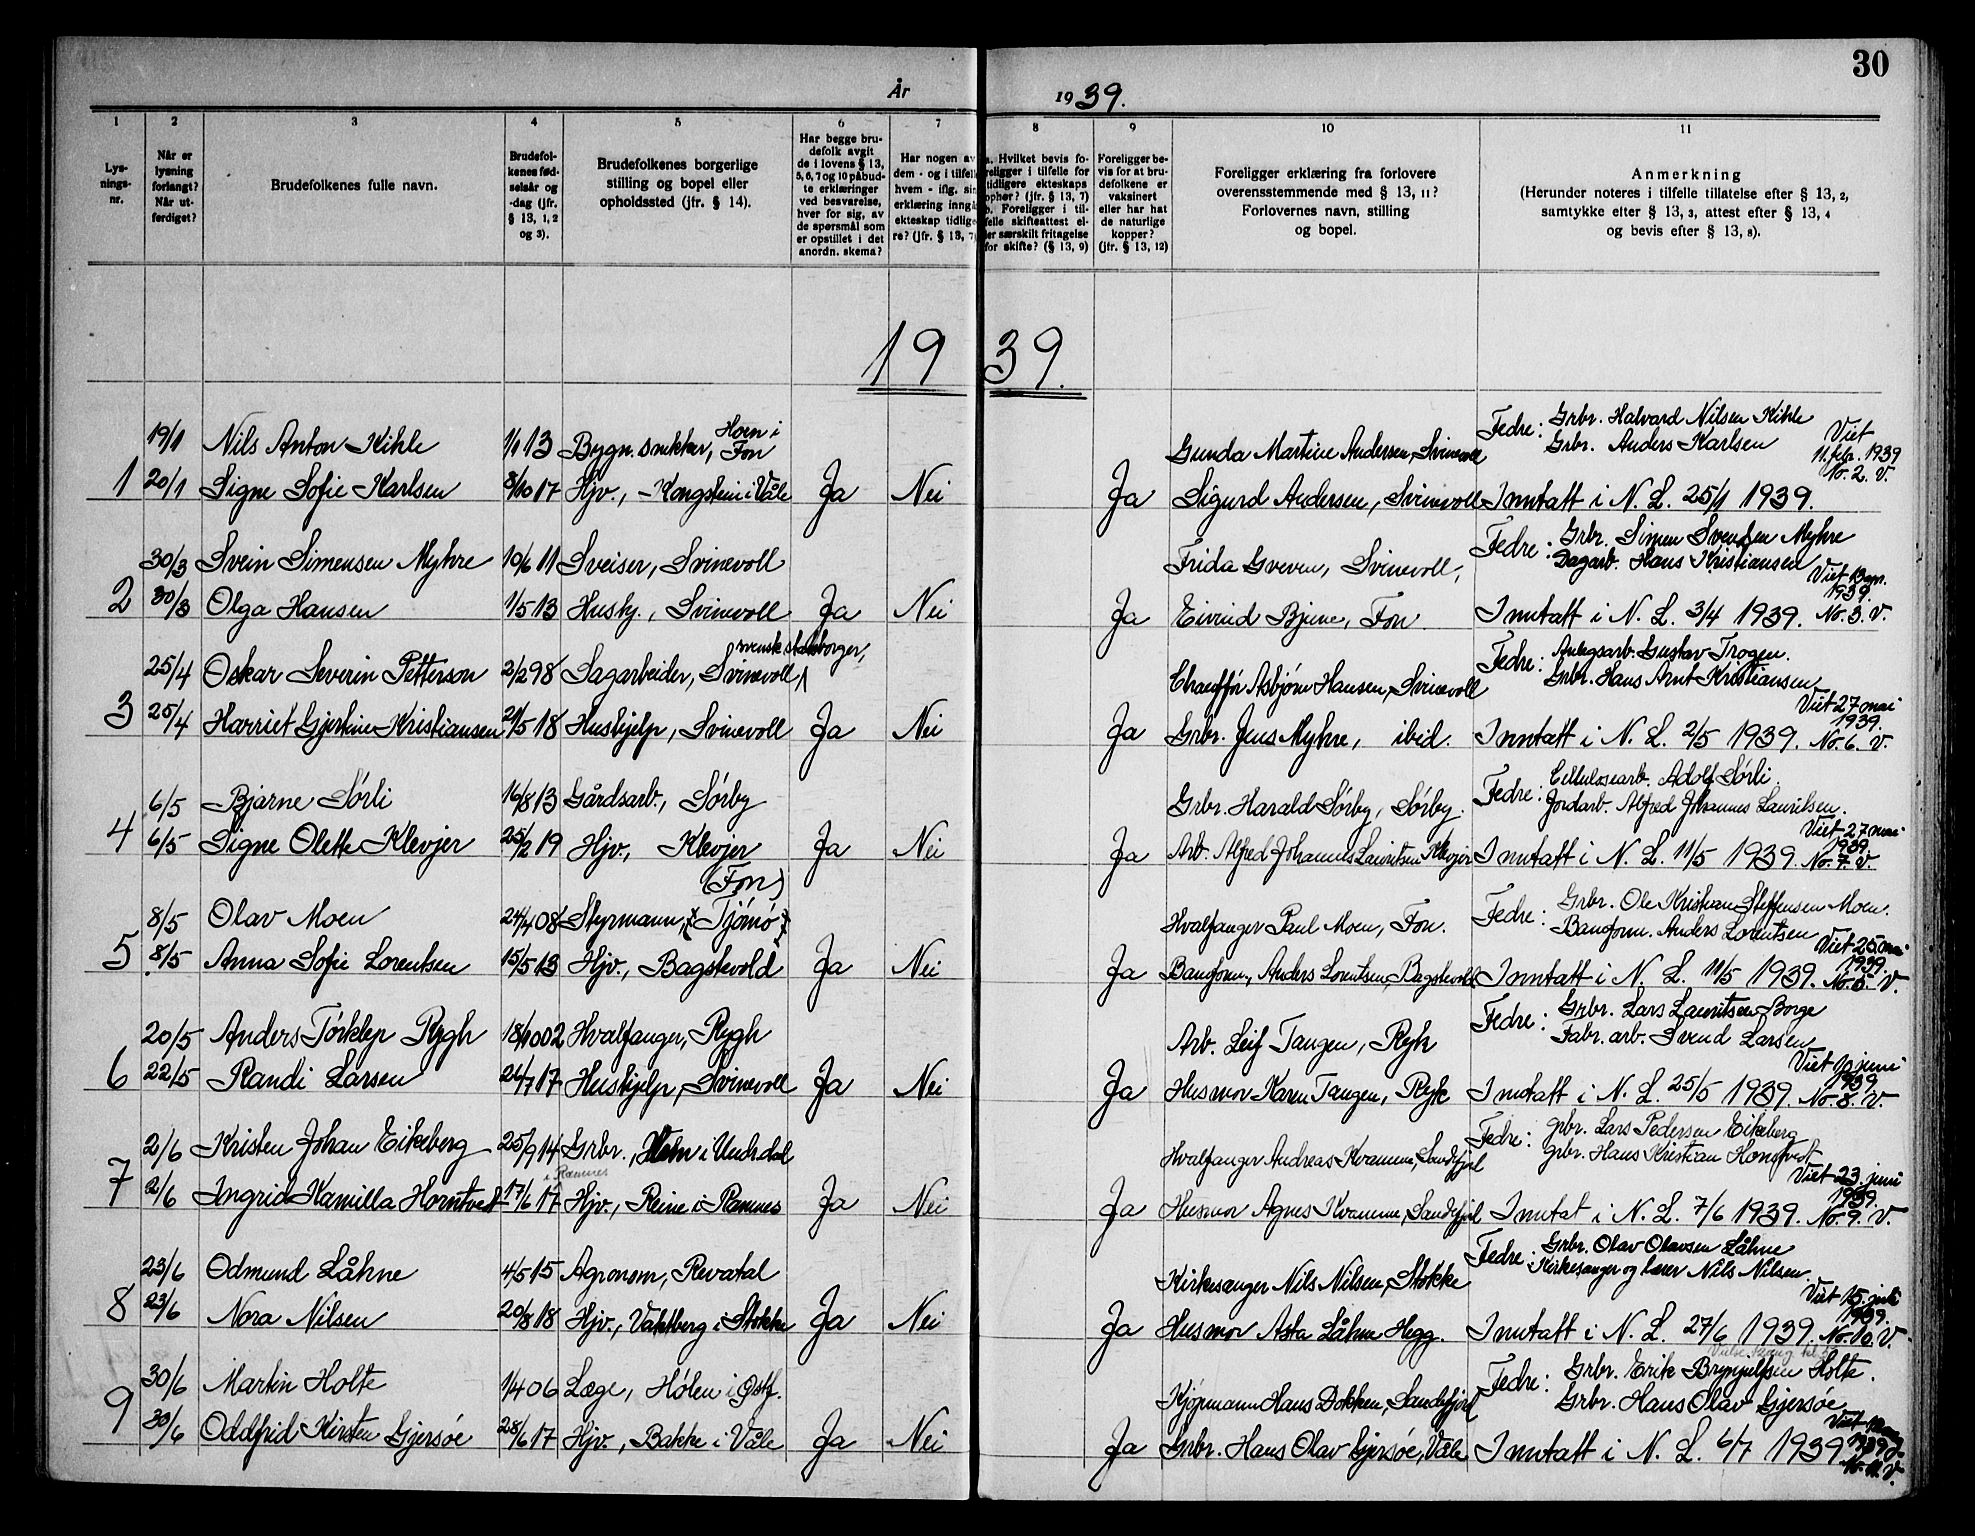 30
År 1939.
1 2 3 4 5 6 7 8 9 10 11
Lys-
nings-
nr.
Når er
lysning
forlangt?
Når ut-
ferdiget?
Brudefolkenes fulle navn.
Brudefol-
kenes fød-
selsår og
-dag (jfr.
§ 13, 1, 2
og 3).
Brudefolkenes borgerlige
stilling og bopel eller
opholdssted (jfr. § 14).
Har begge bru-
defolk avgit
de i lovens § 13,
5, 6, 7 og 10 påbud-
te erklæringer
ved besvarelse,
hver for sig, av
de spørsmål som
er opstillet i det
anordn. skema?
Har nogen av
dem - og i tilfelle
hvem - iflg. sin
erklæring inngå
ekteskap tidlige
re? (jfr. § 13, 7)
a. Hvilket bevis fo-
religger i tilfelle for
tidligere ekteskaps
ophør? (jfr. § 13, 7)
b. Foreligger i til-
felle skifteattest el-
ler særskilt fritagelse
for skifte? (§ 13, 9)
Foreligger be-
vis for at bru-
defolkene er
vaksinert
eller har hat
de naturlige
kopper?
(jfr. § 13, 12)
Foreligger erklæring fra forlovere
overensstemmende med § 13, 11?
Forlovernes navn, stilling
og bopel.
Anmerkning
(Herunder noteres i tilfelle tillatelse efter § 13, 2,
samtykke efter § 13, 3, attest efter § 13, 4
og bevis efter § 13, 8).
1939.
19/1 Nils Anton Kihle 1/1 13 Bygn. snekker, Hoen i Fon Gunda Martine Andersen, Svinevoll Fedre: Grbr. Halvard Nilsen Kihle
Grbr. Anders Karlsen
Viet 11. febr. 1939 No. 2. V.
1 20/1 Signe Sofie Karlsen 8/10 17 Hjv., Kongstein i Våle Ja Nei Ja Sigurd Andersen, Svinevoll Inntatt i N. L. 25/1 1939.
30/3 Svein Simensen Myhre 10/6 11 Sveiser, Svinevoll Frida Greven, Svinevoll, Fedre: Grbr. Simen Svendsen Myhre
Dagarb. Hans Kristiansen
2 30/3 Olga Hansen 1/5 13 Hushj., Svinevoll Ja Nei Ja Eivind Bjune, Fon. Inntatt i N. L. 3/4 1939. Viet 13 apr. 1939. No. 3. V.
25/4 Oskar Severin Petterson 2/2 98 Sagarbeider, Svinevoll, svensk statsborger, Chauffør Asbjørn Hansen, Svinevoll Fedre: Anlegsarb. Gustav Trogen.
Grbr. Hans Arnt Kristiansen
3 25/4 Harriet Gjertine Kristiansen 21/5 18 Hushjelp, Svinevoll Ja Nei Ja Grbr. Jens Myhre, ibid. Inntatt i N. L. 2/5 1939. Viet 27 mai 1939. No. 6. V.
6/5 Bjarne Sørli 16/8 13 Gårdsarb., Sørby Grbr. Harald Sørby, Sørby. Fedre: Cellulosearb. Adolf Sørli.
Jordarb. Alfred Johannes Lauritsen.
4 6/5 Signe Olette Klevjer 25/2 19 Hjv., Klevjer Ja Nei Ja Arb. Alfred Johannes Lauritsen Klevjer Inntatt i N. L. 11/5 1939. Viet 27 mai 1939. No. 7. V.
(Fon)
8/5 Olav Moen 24/4 08 Styrmann, Tjømø Hvalfanger Paul Moen, Fon. Fedre: Grbr. Ole Kristian Steffensen Moen.
Baneform. Anders Lorentsen
5 8/5 Anna Sofie Lorentsen 15/5 13 Hjv., Bagstevold Ja Nei Ja Baneform. Anders Lorentsen, Bagstevold Inntatt i N. L. 11/5 1939. Viet 25 mai 1939. No. 5. V.
20/5 Anders Torklep Rygh 18/10 02 Hvalfanger, Rygh Arb. Leif Tangen, Rygh Fedre: Grbr. Lars Lauritsen Borge
Fabr. arb. Svend Larsen
6 22/5 Randi Larsen 24/7 17 Hushjelp, Svinevoll Ja Nei Ja Husmor Karen Tangen, Rygh Inntatt i N. L. 25/5 1939. Viet juni 1939. No. 8. V.
2/6 Kristen Johan Eikeberg 25/9 14 Grbr., Holm i Undrdal Hvalfanger Andreas Kvamme, Sandefjord Fedre: Grbr. Lars Pedersen Eikeberg
Grbr. Hans Kristian Horntvedt
i Ramnes
7 2/6 Ingrid Kamilla Horntvedt 17/6 17 Hjv., Reine i Ramnes Ja Nei Ja Husmor Agnes Kvamme, Sandefjord Inntat i N. L. 7/6 1939. Viet 23. juni 1939. No. 9. V.
23/6 Odmund Låhne 4/5 15 Agronom, Revatal Kirkesanger Nils Nilsen, Stokke Fedre: Grbr. Olav Olavsen Låhne
Kirkesanger og lærer Nils Nilsen
8 23/6 Nora Nilsen 20/8 18 Hjv., Vaktberg i Stokke Ja Nei Ja Husmor Asta Låhne Hegg. Inntatt i N. L. 27/6 1939. Viet 15. juli 1939. No. 10. V.
30/6 Martin Holte 1/4 06 Læge, Hølen i Østf. Kjøpmann Hans Dokken, Sandefjord Fedre: Grbr. Erik Brynjulfsen Holte.
Grbr. Hans Olav Gjersøe
9 30/6 Oddfrid Kirsten Gjersøe 28/6 17 Hjv., Bakke i Våle Ja Nei Ja Grbr. Hans Olav Gjersøe, Våle Inntatt i N. L. 6/7 1939 Viet 1939 No. 11. V.